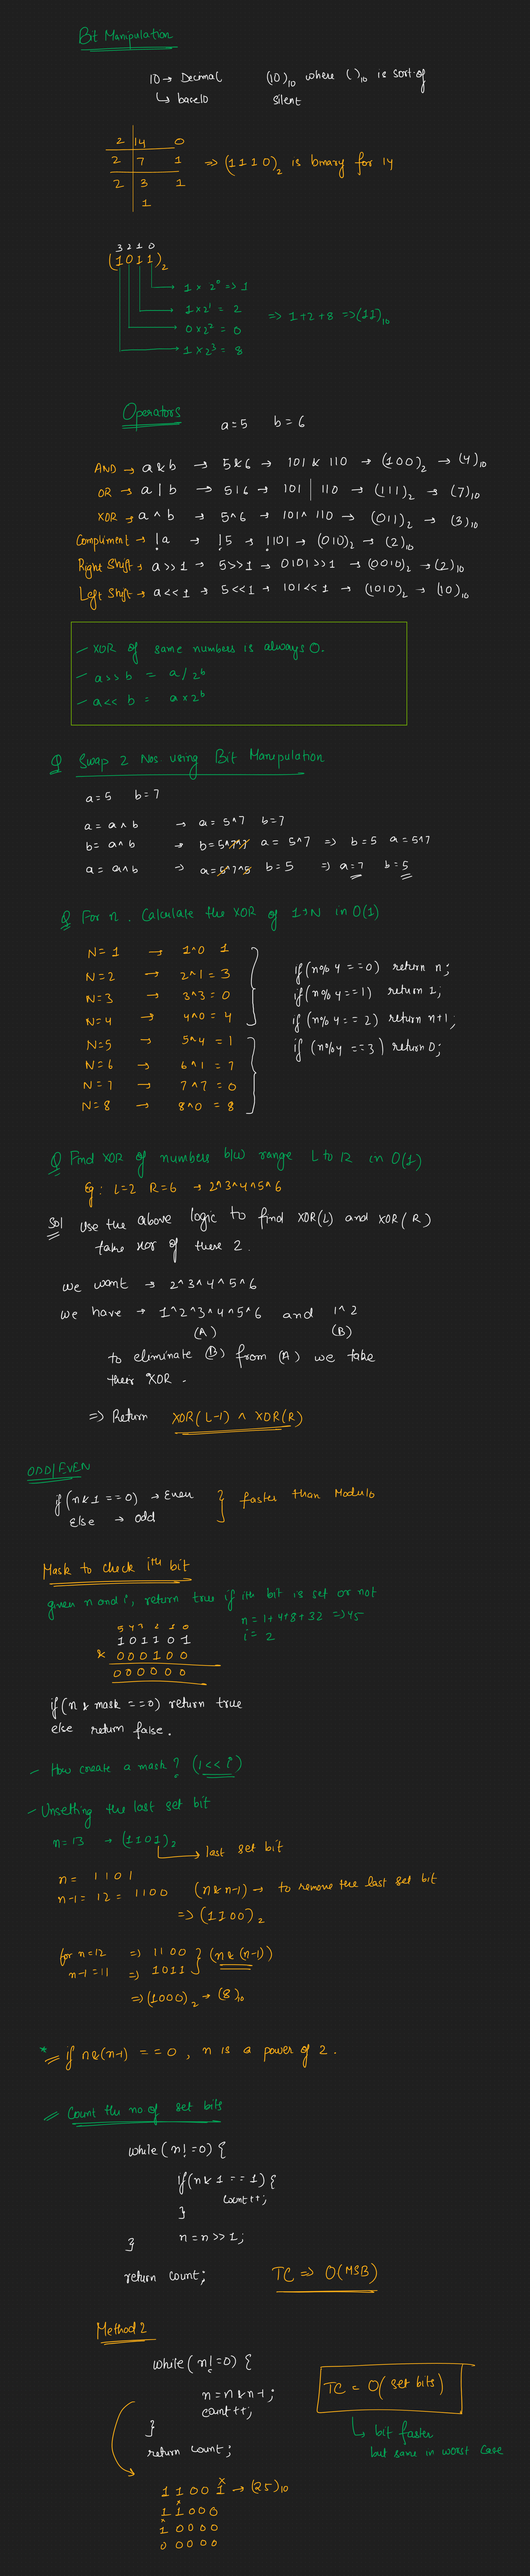 Bit Manipulation
10 → Decimal (10)10 where ( )10 is sort of
↳ base10 silent
2 | 14 0
2 | 7 1 => (1110)2 is binary for 14
2 | 3 1
1
3 2 1 0
(1011)2
→ 1 × 2^0 => 1
→ 1×2^1 = 2 => 1+2+8 => (11)10
→ 0×2^2 = 0
→ 1×2^3 = 8
Operators a=5 b=6
AND → a & b → 5&6 → 101 & 110 → (100)2 → (4)10
OR → a | b → 5|6 → 101 | 110 → (111)2 → (7)10
XOR → a ^ b → 5^6 → 101^110 → (011)2 → (3)10
Compliment → !a → !5 → !101 → (010)2 → (2)10
Right Shift → a>>1 → 5>>1 → 0101>>1 → (0010)2 → (2)10
Left Shift → a<<1 → 5<<1 → 101<<1 → (1010)2 → (10)10
- XOR of same numbers is always 0.
- a>>b = a/2^b
- a<<b = a×2^b
Q Swap 2 Nos. using Bit Manipulation
a=5 b=7
a = a^b → a = 5^7 b=7
b = a^b → b=5^7^7 a = 5^7 => b=5 a=5^7
a = a^b → a=5^7^5 b=5 => a=7 b=5
Q For n. Calculate the XOR of 1→N in O(1)
N=1 → 1^0 1
N=2 → 2^1 = 3 if(n%4==0) return n;
N=3 → 3^3 = 0 if(n%4==1) return 1;
N=4 → 4^0 = 4 if(n%4==2) return n+1;
N=5 → 5^4 = 1 if(n%4==3) return 0;
N=6 → 6^1 = 7
N=7 → 7^7 = 0
N=8 → 8^0 = 8
Q Find XOR of numbers b/w range L to R in O(1)
Eg: L=2 R=6 → 2^3^4^5^6
Sol Use the above logic to find XOR(L) and XOR(R)
take xor of these 2.
we want → 2^3^4^5^6
we have → 1^2^3^4^5^6 and 1^2
(A) (B)
to eliminate (B) from (A) we take
their XOR.
=> Return XOR(L-1) ^ XOR(R)
ODD/EVEN
if(n&1==0) → Even } faster than Modulo
Else → odd
Mask to check ith bit
given n and i, return true if ith bit is set or not
n=1+4+8+32 => 45
5 4 3 2 1 0
101101 i=2
& 000100
000000
if(n & mask ==0) return true
else return false.
- How create a mask? (1<<i)
- Unsetting the last set bit
n=13 → (1101)2
→ last set bit
n = 1101
n-1 = 12 = 1100 (n&n-1) → to remove the last set bit
=> (1100)2
for n=12 => 1100 } (n&(n-1))
n-1=11 => 1011
=> (1000)2 → (8)10
* if n&(n-1) == 0, n is a power of 2.
Count the no of set bits
while(n!=0) {
if(n&1==1) {
count++;
}
n=n>>1;
}
return count; TC => O(MSB)
Method 2
while(n!=0) {
n=n&n-1; TC = O(set bits)
count++;
} ↳ bit faster
return count; but same in worst case
11001 → (25)10
11000
10000
00000